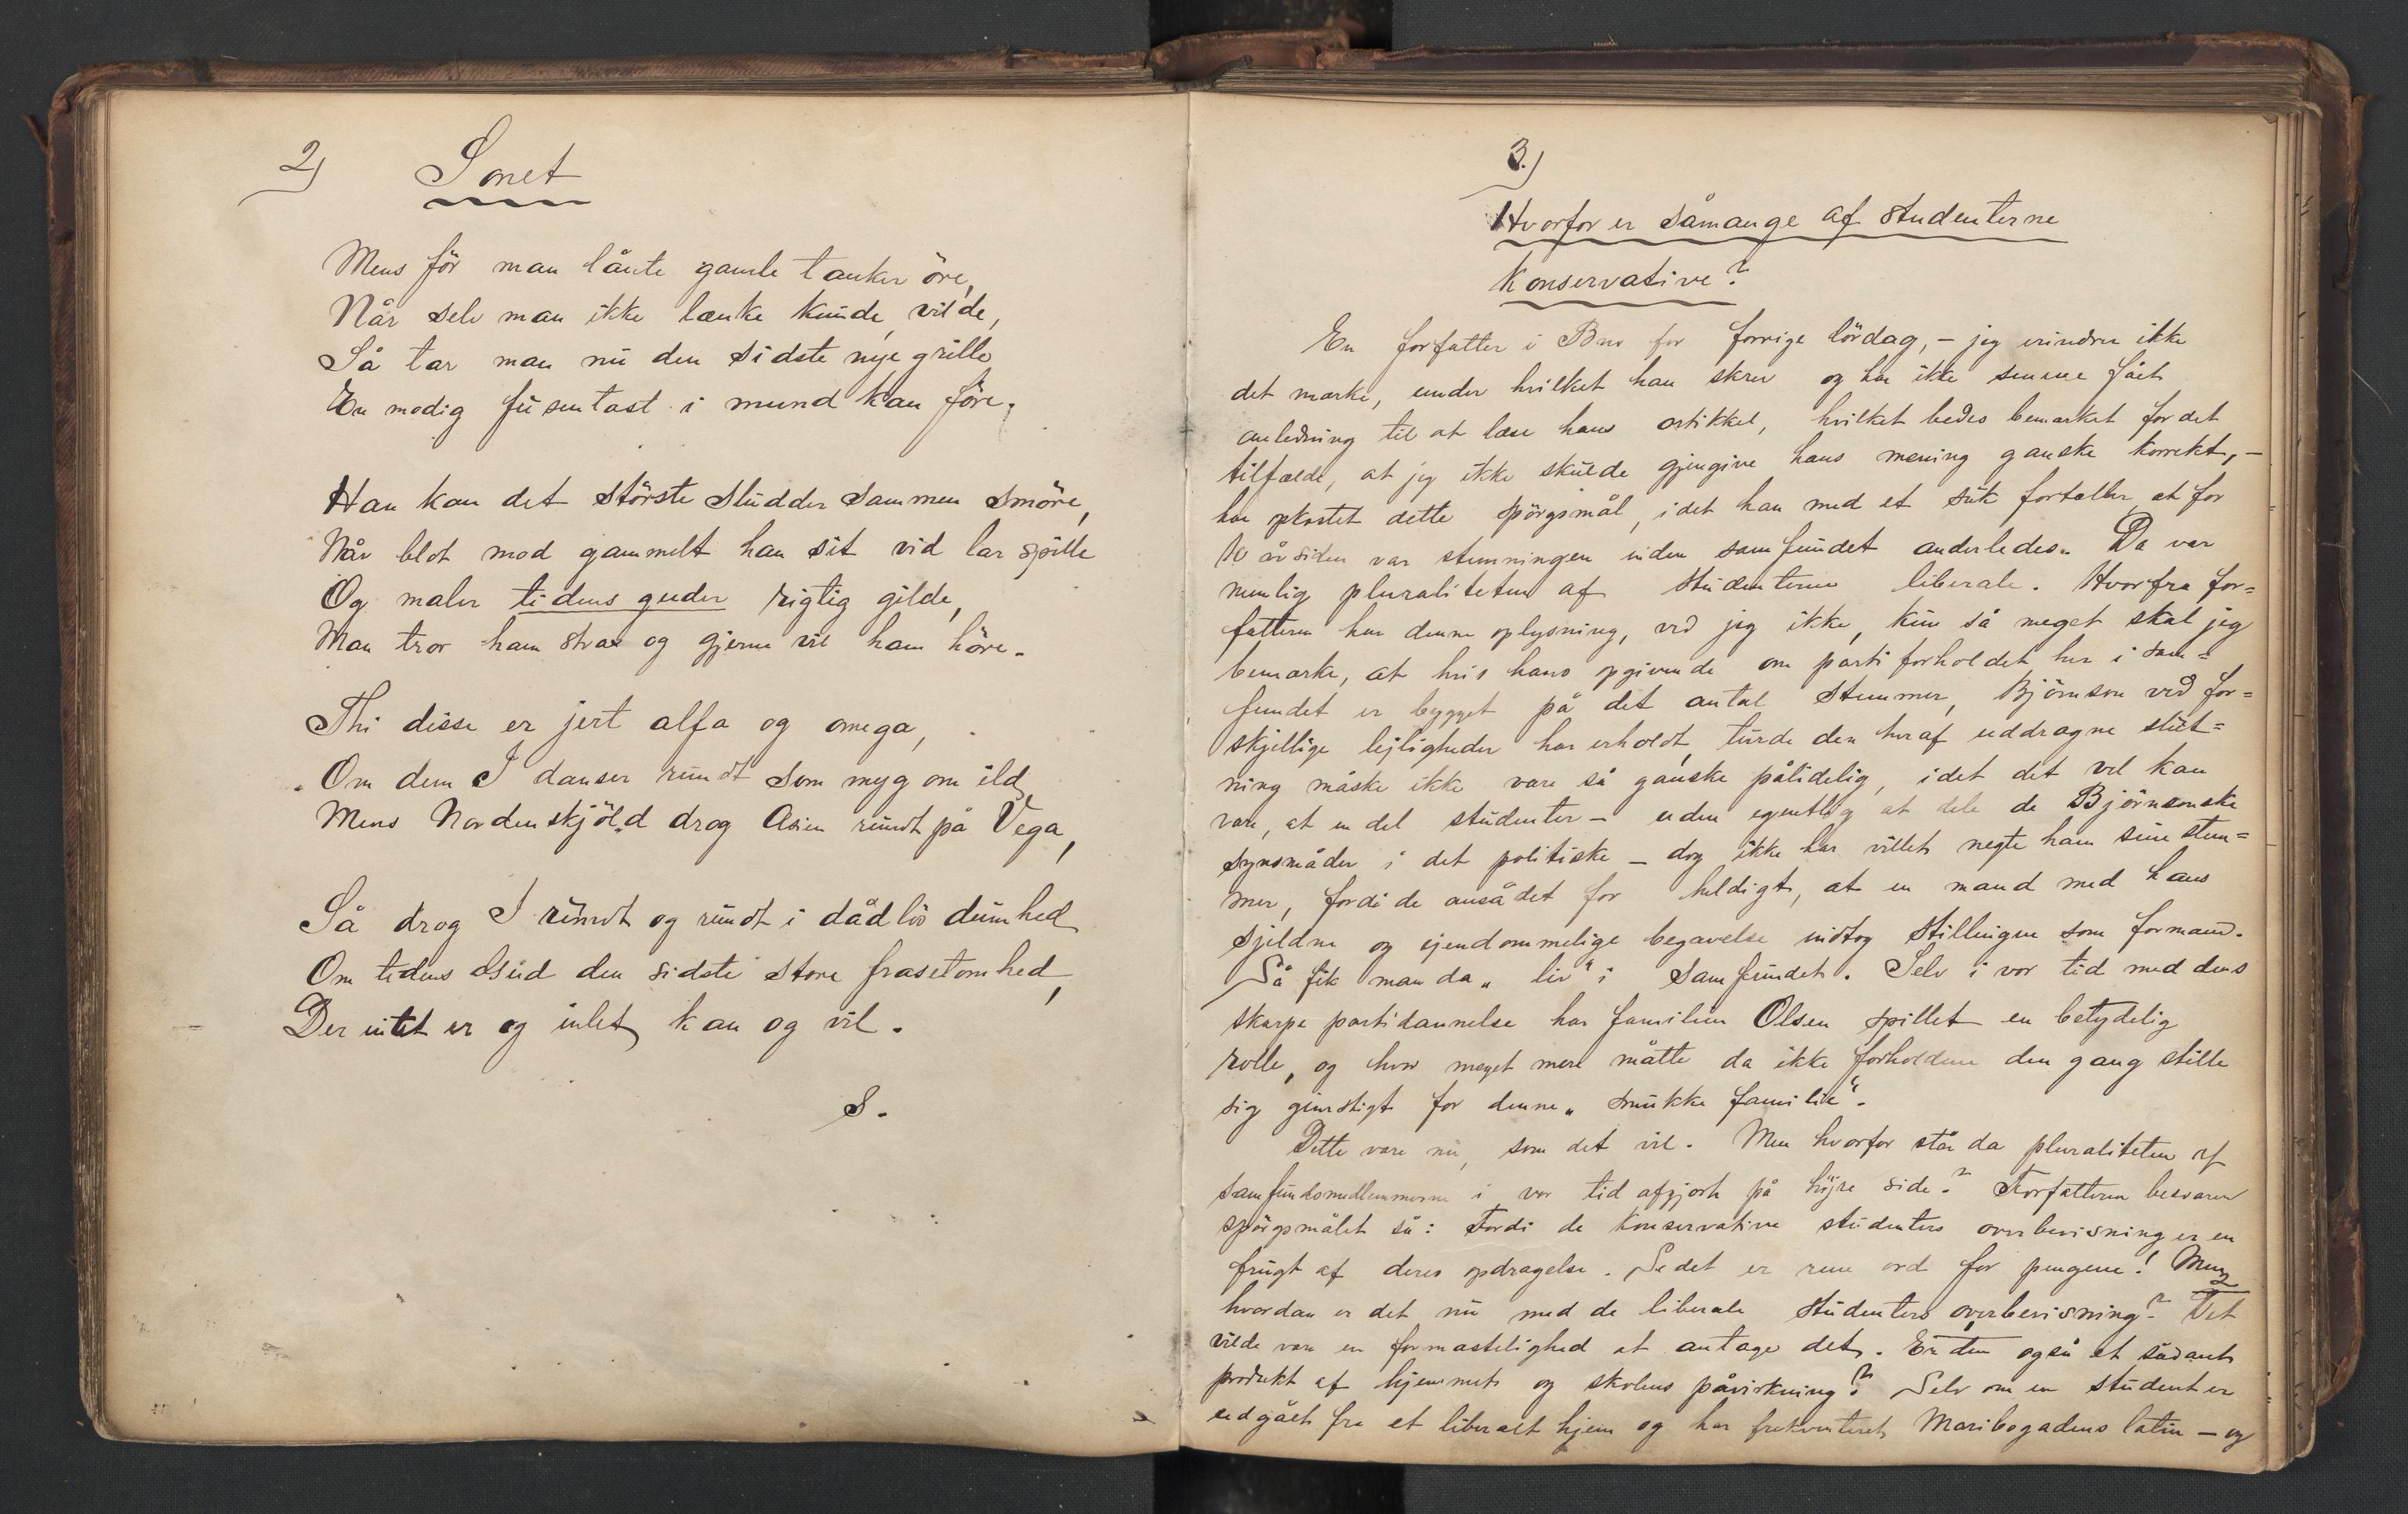 2)
Sonet
Mens för man lånte gamle tanker öre,
Når selv man ikke tænke kunde, vilde,
Så tar man nu den sidste nye grille
En modig fusentast i mund kan före.
Han kan det störste sludder sammen smöre,
Når blot mod gammelt han sit vid lar spille
Og maler tidens guder rigtig gilde,
Man tror ham strax og gjerne vil ham höre.
Thi disse er jert alfa og omega,
Om dem I danser rundt som myg om ild,
Mens Nordenskjöld drog Asien rundt på Vega,
Så drog I rundt og rundt i dådlös dumhed
Om tidens Gud den sidste store frasetomhed,
Der intet er og intet kan og vil.
S.
3.)
Hvorfor er såmange af studenterne
konservative?
En forfatter i Brv for forrige lördag, – jeg erindrer ikke
det mærke, under hvilket han skrev og har ikke senere fået
anledning til at læse hans artikkel, hvilket bedes bemærket for det
tilfælde, at jeg ikke skulde gjengive hans mening ganske korrekt, –
har opkastet dette spörgsmål, idet han med et suk fortæller, at for
10 år siden var stemningen inden samfundet anderledes. Da var
nemlig pluraliteten af studenterne liberale. Hvorfra for=
fatteren har denne oplysning, ved jeg ikke, kun så meget skal jeg
bemærke, at hvis hans opgivende om partiforholdet her i sam=
fundet er bygget på det antal stemmer, Björnson ved for=
skjellige lejligheder har erholdt, turde den heraf uddragne slut=
ning måske ikke være så ganske pålidelig, idet det vel kan
være, at en del studenter – uden egentlig at dele de Björnsonske
synsmåder i det politiske – dog ikke har villet negte ham sine stem=
mer, fordi de anså det for heldigt, at en mand med hans
sjeldne og ejendommelige begavelse indtog stillingen som formand.
Så fik man da „liv“ i samfundet. Selv i vor tid med dens
skarpe partidannelse har familien Olsen spillet en betydelig
rolle, og hvor meget mere måtte da ikke forholdene den gang stille
sig gunstigt for denne „smukke familie“.
Dette være nu, som det vil. Men hvorfor står da pluraliteten af
samfundsmedlemmerne i vor tid afgjort på höjre side? Forfatteren besvarer
spörgsmålet så: Fordi de konservative studenters overbevisning er en
frugt af deres opdragelse. Se det er rene ord for pengene! Men
hvordan er det nu med de liberale studenters overbevisning? Det
vilde være en formastelighed at antage det. Er den også et sådant
produkt af hjemmets og skolens påvirkning? Selv om en student er
udgået fra et liberalt hjem og har frekventeret Maribogadens latin – og